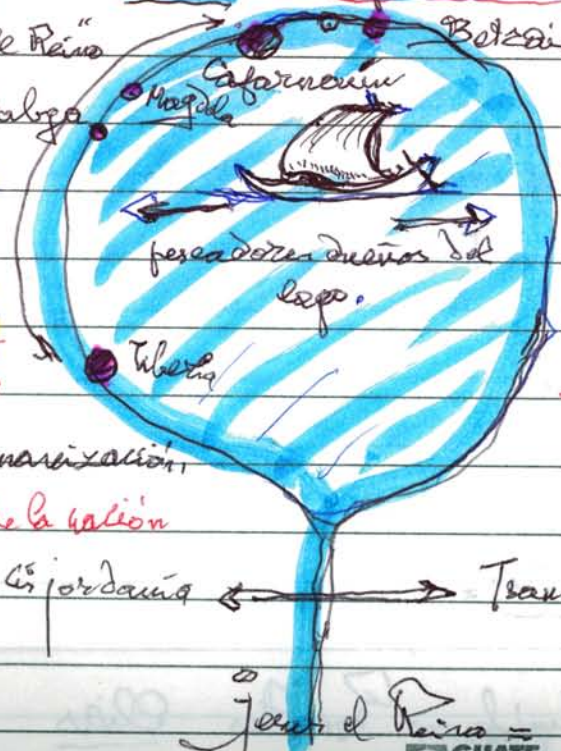 e Reino"
Betsai
Cafarnaún
Magdala
pescadores dueños del
lago.
Tiberia
narización,
e la nación
Cisjordania
Tran
Jesús el Reino =